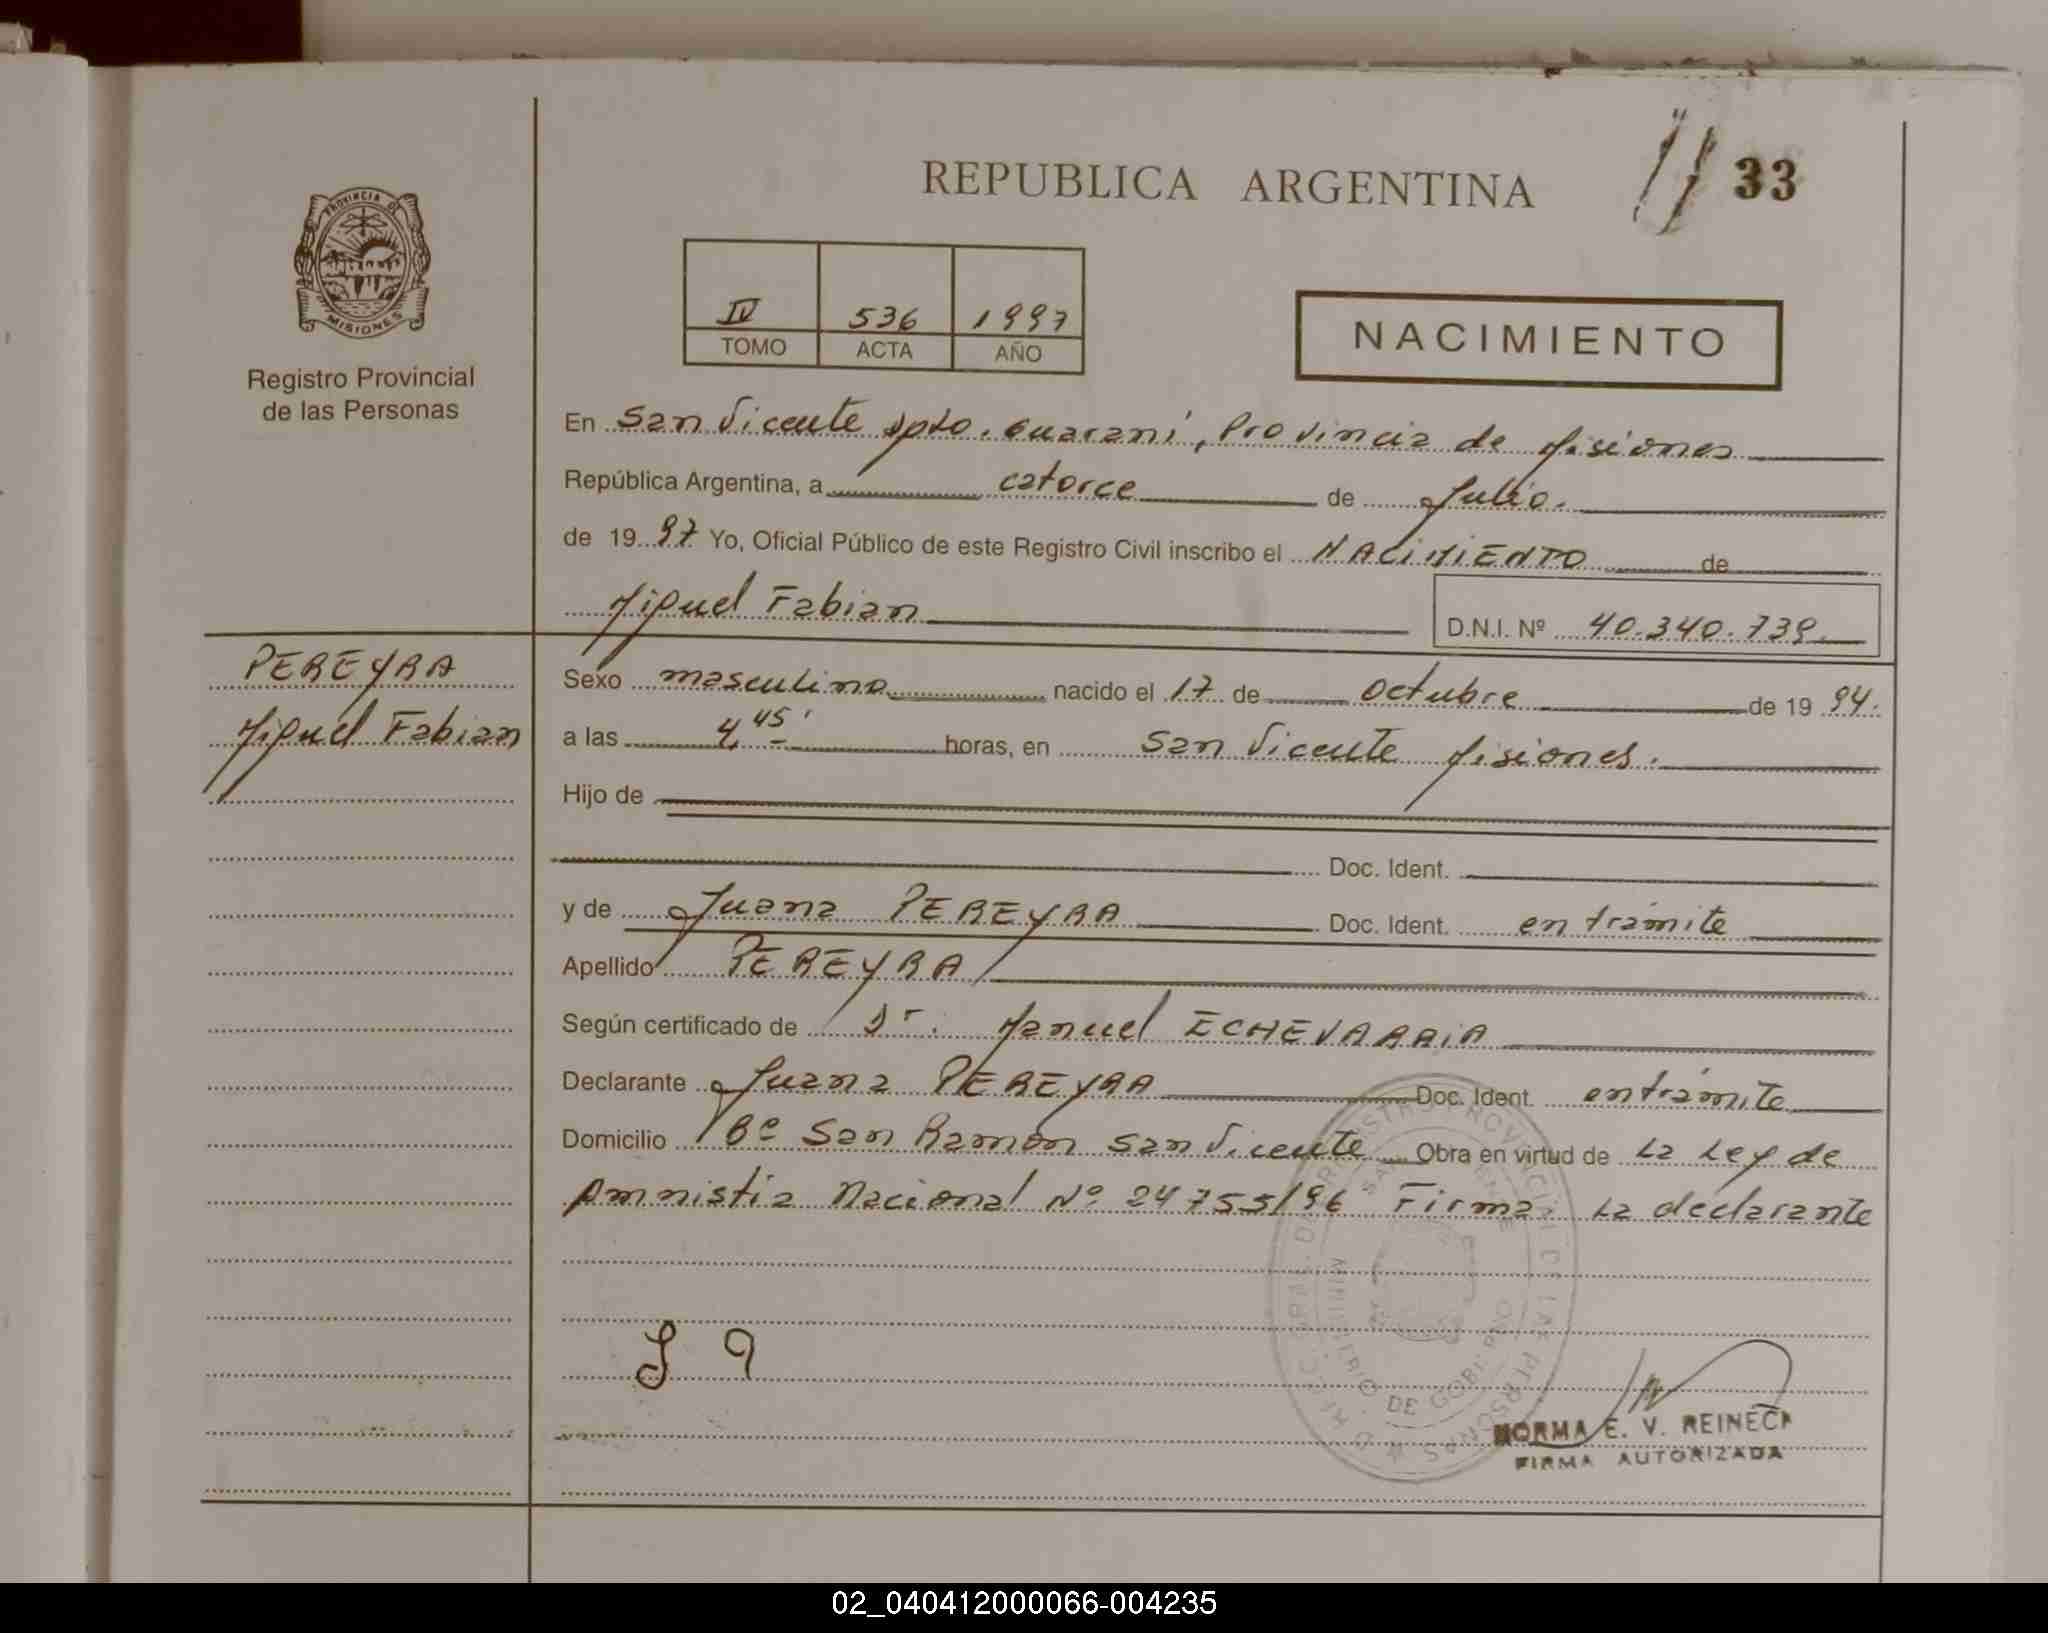 REPUBLICA ARGENTINA
33
PROVINCIA DE
MISIONES
Registro Provincial
de las Personas
IV 536 1997
TOMO ACTA AÑO
NACIMIENTO
En San Vicente Dpto. Guaraní, Provincia de Misiones
República Argentina, a catorce de Julio.
de 19 97 Yo, Oficial Público de este Registro Civil inscribo el NACIMIENTO de
Miguel Fabian
D.N.I. Nº 40.340.739
PEREYRA
Miguel Fabian
Sexo masculino nacido el 17 de Octubre de 19 94.
a las 4 45' horas, en San Vicente Misiones.
Hijo de
Doc. Ident.
y de Juana PEREYRA Doc. Ident. en trámite
Apellido PEREYRA
Según certificado de Dr. Manuel ECHEVARRIA
Declarante Juana PEREYRA Doc. Ident. en trámite
Domicilio Bº San Ramon San Vicente Obra en virtud de La Ley de
Amnistia Nacional Nº 24755/96 Firma: La declarante
NORMA E. V. REINECK
FIRMA AUTORIZADA
02_040412000066-004235